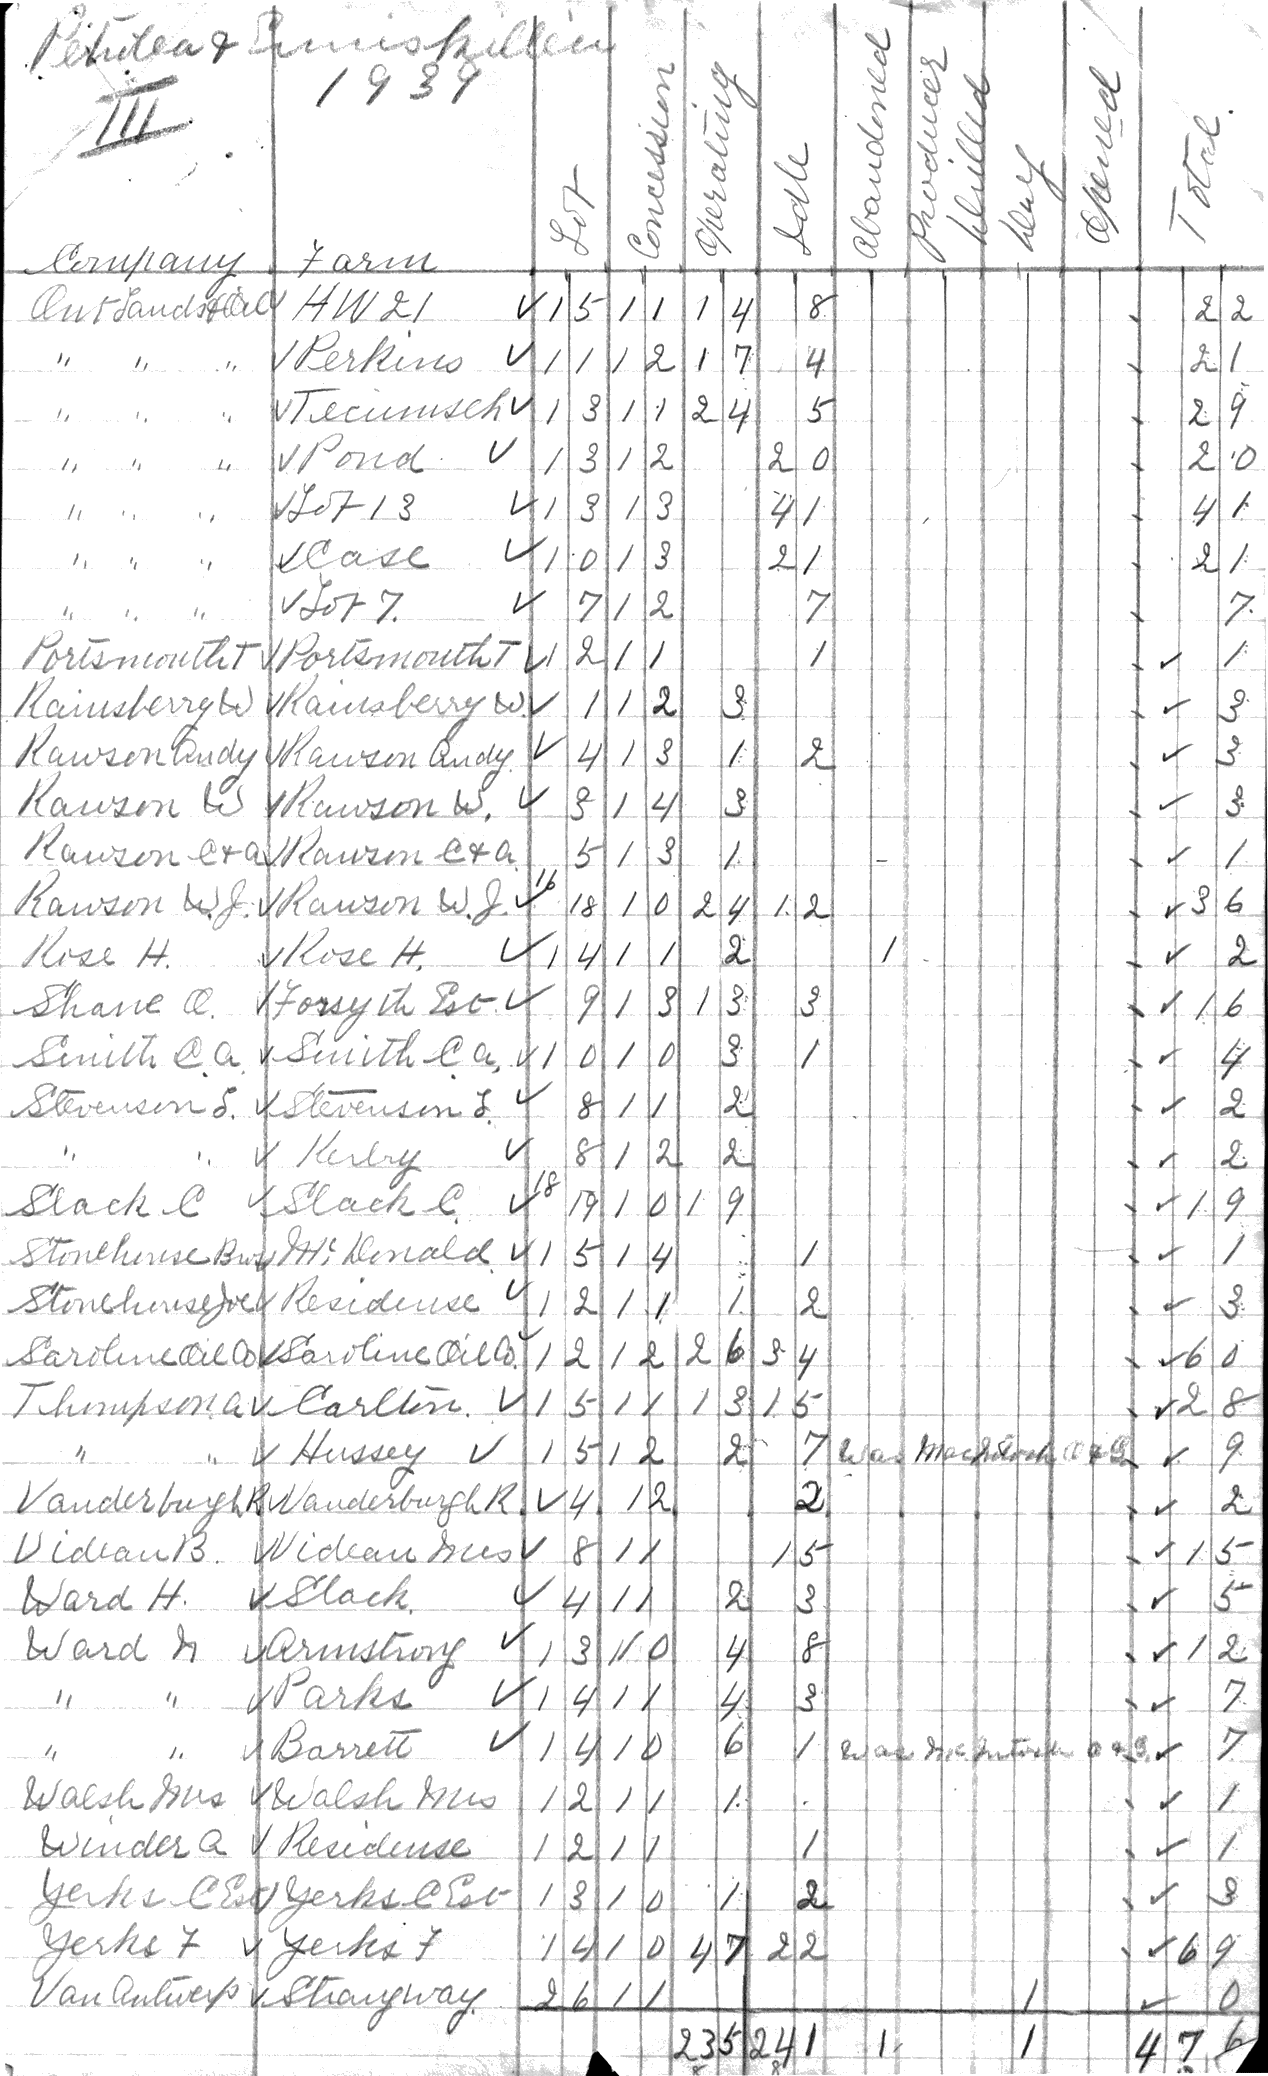 Petrolea & Enniskillen
1939
III
Company Farm Lot Concession Operating Idle Abandoned Producer Drilled Dry Opened Total
Ont Lands & Oil Co ✓ HW 21 ✓ 15 11 14 8 22
" " " ✓ Perkins ✓ 11 12 17 4 21
" " " ✓ Tecumseh ✓ 13 11 24 5 29
" " " ✓ Pond ✓ 13 12 20 20
" " " ✓ Lot 13 ✓ 13 13 41 41
" " " ✓ Case ✓ 10 13 21 21
" " " ✓ Lot 7. ✓ 7 12 7 7
Portsmouth T ✓ Portsmouth T ✓ 12 11 1 ✓ 1
Rainsberry W ✓ Rainsberry W. ✓ 1 12 3 ✓ 3
Rawson Andy ✓ Rawson Andy ✓ 4 13 1 2 ✓ 3
Rawson W ✓ Rawson W. ✓ 3 14 3 ✓ 3
Rawson C & A ✓ Rawson C & A 5 13 1 - ✓ 1
Rawson W.J. ✓ Rawson W.J. ✓ 16 18 10 24 12 ✓ 36
Rose H. ✓ Rose H. ✓ 14 11 2 1 ✓ 2
Shane O. ✓ Forsyth Est ✓ 9 13 13 3 ✓ 16
Smith C.A. ✓ Smith C A, ✓ 10 10 3 1 ✓ 4
Stevenson L. ✓ Stevenson L. ✓ 8 11 2 ✓ 2
" " ✓ Kerby ✓ 8 12 2 ✓ 2
Slack C ✓ Slack C. ✓ 18 19 10 19 ✓ 19
Stonehouse Bros ✓ McDonald ✓ 15 14 1 ✓ 1
Stonehouse Joe ✓ Residense ✓ 12 11 1 2 ✓ 3
Saroline Oil Co ✓ Saroline Oil Co. ✓ 12 12 26 34 ✓ 60
Thompson. A ✓ Carlton. ✓ 15 11 13 15 ✓ 28
" " ✓ Hussey ✓ 15 12 2 7 Was MacIntosh O & G ✓ 9
Vanderburgh R. ✓ Vanderburgh R. ✓ 4 12 2 ✓ 2
Videan B. ✓ Videan Mrs ✓ 8 11 15 ✓ 15
Ward H. ✓ Slack. ✓ 4 11 2 3 ✓ 5
Ward N ✓ Armstrong ✓ 13 10 4 8 ✓ 12
" " ✓ Parks ✓ 14 11 4 3 ✓ 7
" " ✓ Barrett ✓ 14 10 6 1 Was McIntosh O & G. ✓ 7
Walsh Mrs ✓ Walsh Mrs 12 11 1 ✓ 1
Winder A ✓ Residense 12 11 1 ✓ 1
Yerks C Est ✓ Yerks C Est 13 10 1 2 ✓ 3
Yerks F ✓ Yerks F 14 10 47 22 ✓ 69
Van Antwerp ✓ Strangway. 26 11 1 ✓ 0
235 241 1 1 476